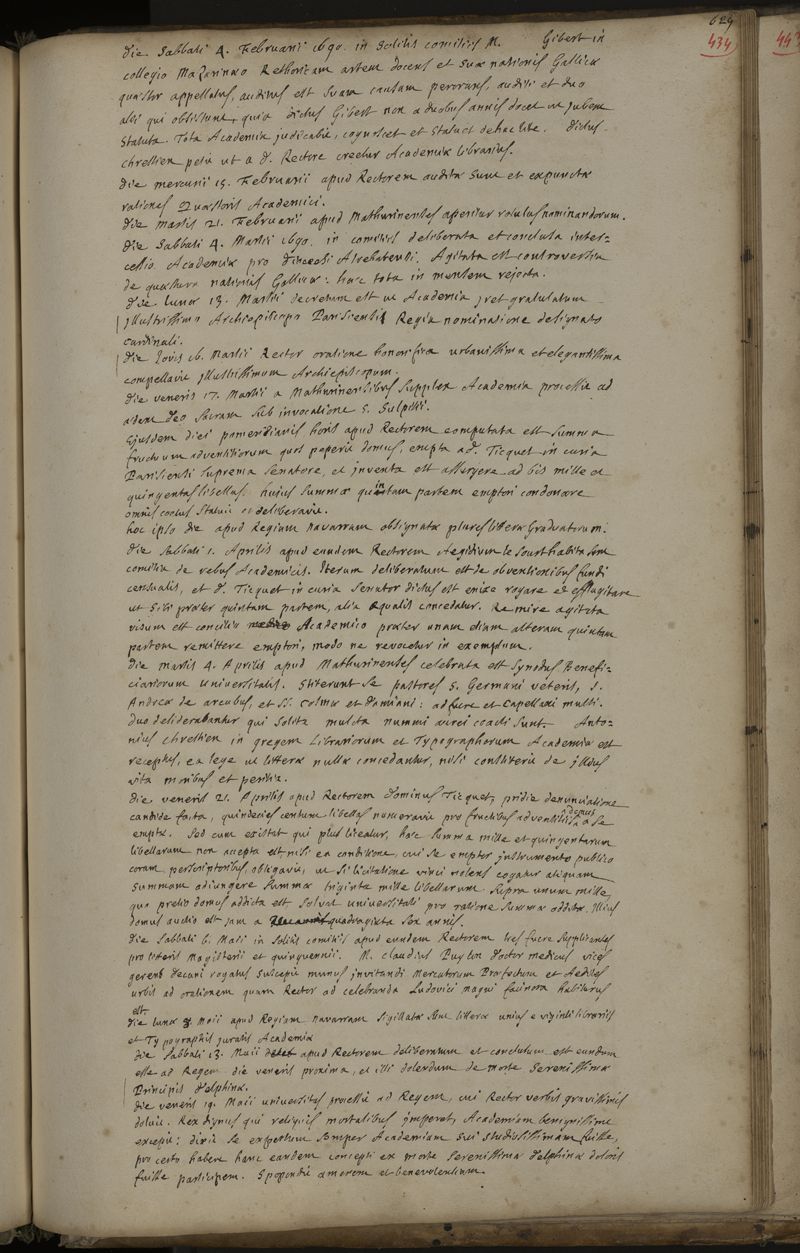 629
434
443
die Sabbati 4. Februarii 1690. in Solitis comitiis M. Gibert in
collegio Mazarinæo Rethoricam artem docens et suæ nationis Gallicæ
quæstor appellatus, auditus est suam causam perorans, auditi et duo
alii qui obsistunt, quia dictus Gibert non a duobus annis docet ut jubent
Statuta. Tota Academia judicabit, cognoscet et statuet de hac lite. dictus
chrestien petit ut a d. Rectore creetur Academiæ librarius.
die mercurii 15. Februarii apud Rectorem auditæ sunt et expunctæ
rationes Quæstoris Academici.
die martis 21. Februarii apud Mathurinenses aperitur rotulus nominandorum.
die Sabbati 4. Martii 1690. in comitiis deliberata et conclusa inter=
cessio Academiæ pro diœcesi Atrebatensi. Agitata est controversia
de quæstura nationis Gallicæ: hæc tota in mensem rejecta.
die lunæ 13. Martii decretum est ut Academia iret gratulatum
jllustrissimo Archiepiscopo Parisiensi Regia nominatione designato
cardinali.
die Jovis 16. Martii Rector oratione honorifica urbanissima et elegantissima
compellavit jllustrissimum Archiepiscopum.
die veneris 17. Martii a Mathurinensibus supplex Academia processit ad
ædem deo sacram sub invocatione S. Sulpitii.
Ejusdem diei pomeridianis horis apud Rectorem computata est summa
fructuum adventitiorum quos peperit domus, empta a d. Ticquet in curia
Parisiensi suprema senatore, et inventa est assurgere ad bis mille et
quingentas libellas. hujus summæ quintam partem emptori condonare
omnis coetus statuit et deliberavit.
hoc ipso die apud Regiam navarram obsignatæ plures litteræ Graduatorum.
die Sabbati 1. Aprilis apud eundem Rectorem Aegidium le Sourt habita sunt
comitia de rebus Academicis. Iterum deliberatum est de obventionibus fundi
censualis, et d. Ticquet in curia Senator dictus est enixe rogare et efflagitare
ut sibi præter quintam partem, alia æqualis concedatur. Re mire agitata
visum est concilio Academico præter unam etiam alteram quintam
partem remittere emptori, modo ne revocetur in exemplum.
die martis 4. Aprilis apud Mathurinenses celebrata est Synodus Benefi=
ciariorum universitatis. Stiterunt se pastores S. Germani veteris, S.
Andreæ de arcubus, et SS. Cosmæ et Damiani: adfuere et Capellani multi.
duo desiderabantur qui solita multa nummi aurei coacti sunt. Anto=
nius chrestien in gregem Librariorum et Typographorum Academiæ est
receptus, ea lege ut litteræ nullæ concedantur, nisi constiterit de jllius
vita moribus et peritia.
die veneris 21. Aprilis apud Rectorem dominus Ticquet, pridie denunciatione
candide facta, quindecies centum libellas numeravit pro fructibus adventitiis domus a se
emptæ. Sed cum existat qui plus liceatur, hæc summa mille et quingentarum
libellarum non accepta est, nisi ea conditione, cui se emptor jnstrumento publico
coram perscriptoribus, obligavit, ut si licitatione vinci nolens cogatur aliquam
summam adjungere summæ triginta mille libellarum supra unum mille
quo pretio domus addicta est solvat universitati pro ratione summæ additæ. Illius
domus auctio est jam a quadraginta sex annis.
die Sabbati 6. Maii in solitis comitiis apud eundem Rectorem tres fuere supplicantes
pro litteris Magisterii et quinquennii. M. claudius Puylon doctor medicus vices
gerens decani rogatus suscepit munus jnvitandi Mercatorum Præfectum et Aediles
urbis ad orationem quam Rector ad celebranda Ludovici magni facinora habiturus
est.
die lunæ 8. Maii apud Regiam navarram sigillatæ sunt litteræ unius e viginti librariis
et Typographis juratis Academiæ
die Sabbati 13. Maii apud Rectorem deliberatum et conclusum est eundum
esse ad Regem die veneris proxima, et illi dolendum de morte Serenissimæ
Principis Delphinæ.
die veneris 19. Maii universitas processit ad Regem, cui Rector verbis gravissimis
doluit. Rex dignus qui reliquis mortalibus jmperet, Academiam benignissime
excepit: dixit se expertum semper Academiam sui studiosissimam fuisse,
pro certo habere hanc eandem concepti ex morte Serenissimæ Delphinæ doloris
fuisse participem. Spopondit amorem et benevolentiam.